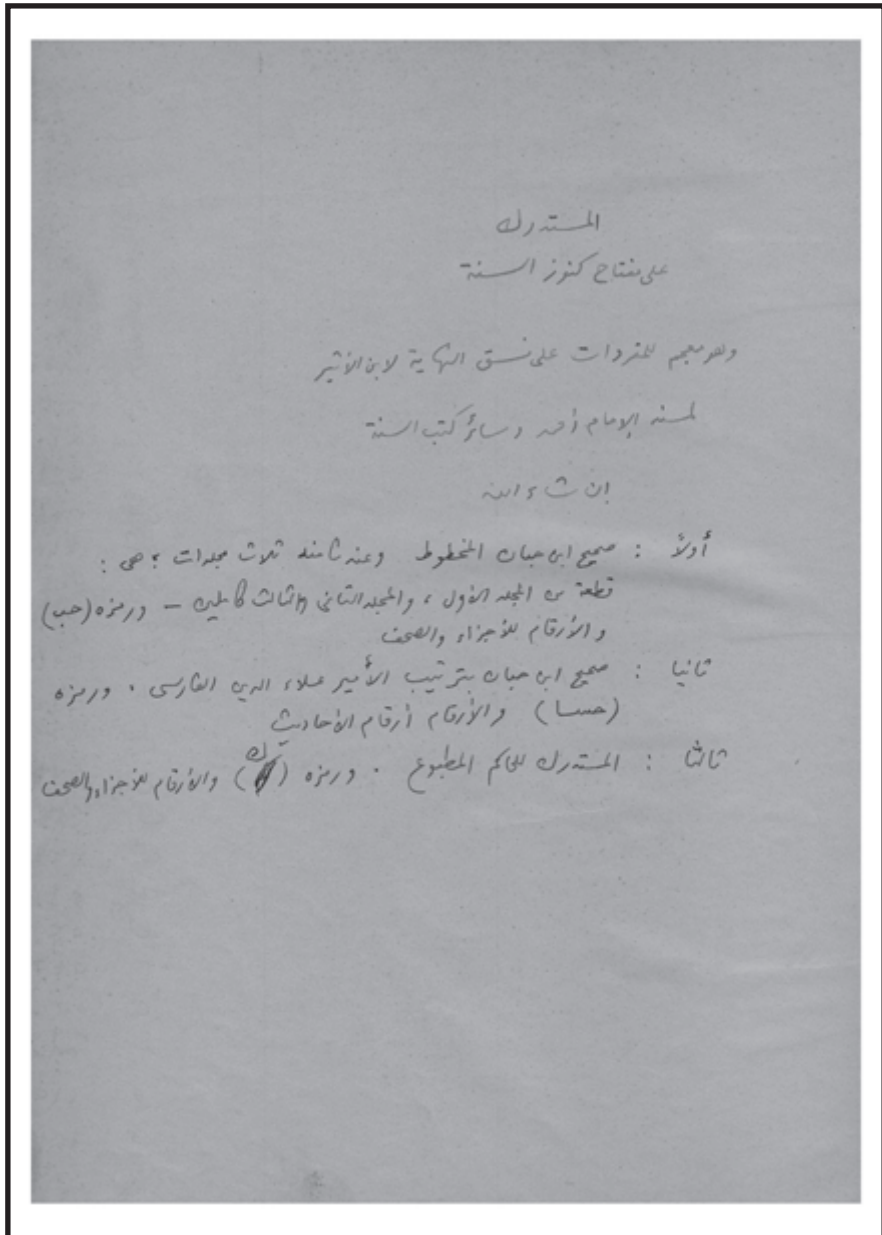 المستدرك
على مفتاح كنوز السنة
وهو معجم للمفردات على نسق النهاية لابن الأثير
لمسند الإمام أحمد وسائر كتب السنة
إن شاء الله
أولاً : صحيح ابن حبان المخطوط وعندنا منه ثلاث مجلدات ؛ هى :
قطعة من المجلد الأول ، والمجلد الثانى والثالث كاملين – ورمزه (حب)
والأرقام للأجزاء والصحف
ثانيا : صحيح ابن حبان بترتيب الأمير علاء الدين الفارسى . ورمزه
(حسا) والأرقام أرقام الأحاديث
ثالثا : المستدرك للحاكم المطبوع . ورمزه (ك) والأرقام للأجزاء والصحف